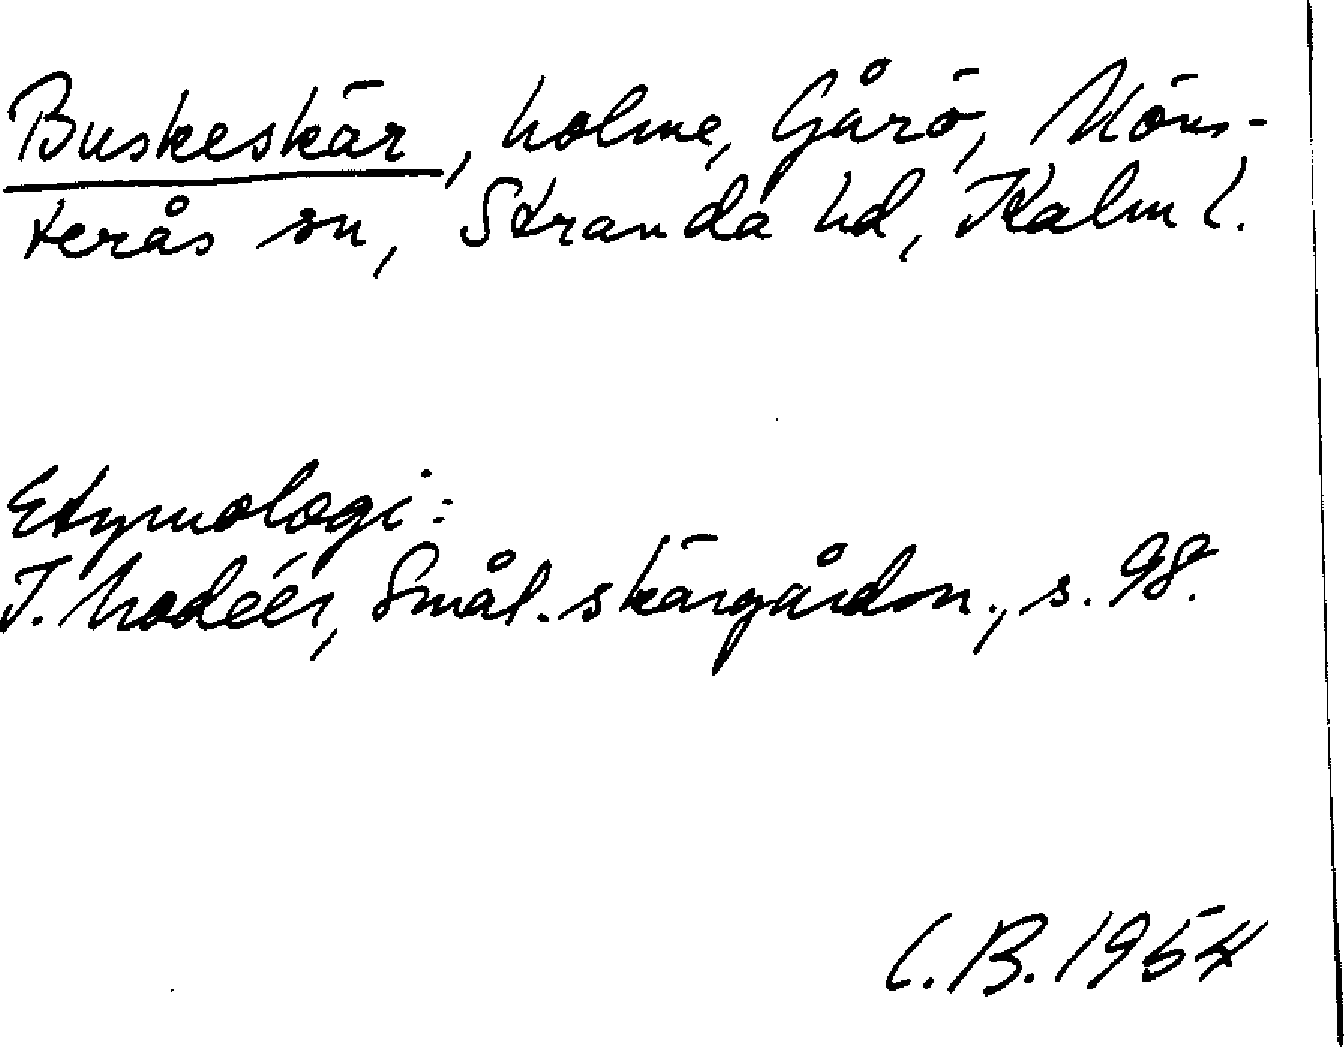 Buskeskär, holme, Gårö, Möns-
terås sn, Stranda hd, Kalm l.
Etymologi:
I. Modéer, Smål. skärgårdsn., s. 98.
C.B. 1954